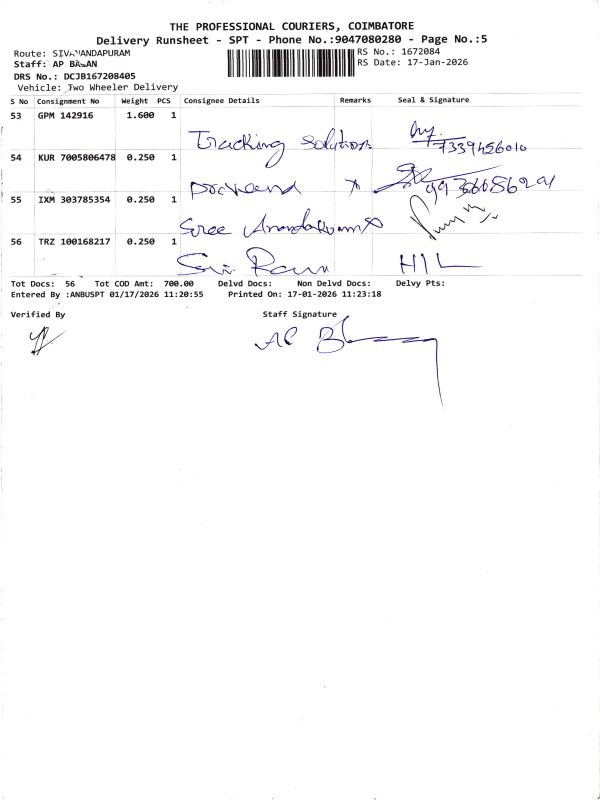 THE PROFESSIONAL COURIERS, COIMBATORE
Delivery Runsheet - SPT - Phone No.:9047080280 - Page No.:5
Route: SIVANANDAPURAM
RS No.: 1672084
Staff: AP BALAN
RS Date: 17-Jan-2026
DRS No.: DCJB167208405
Vehicle: Two Wheeler Delivery
S No Consignment No Weight PCS Consignee Details Remarks Seal & Signature
53 GPM 142916 1.600 1
Tracking Solutions 7339456010
54 KUR 7005806478 0.250 1
55 IXM 303785354 0.250 1
Sree
56 TRZ 100168217 0.250 1
Sri Ram HIL
Tot Docs: 56 Tot COD Amt: 700.00 Delvd Docs: Non Delvd Docs: Delvy Pts:
Entered By :ANBUSPT 01/17/2026 11:20:55 Printed On: 17-01-2026 11:23:18
Verified By Staff Signature
AP